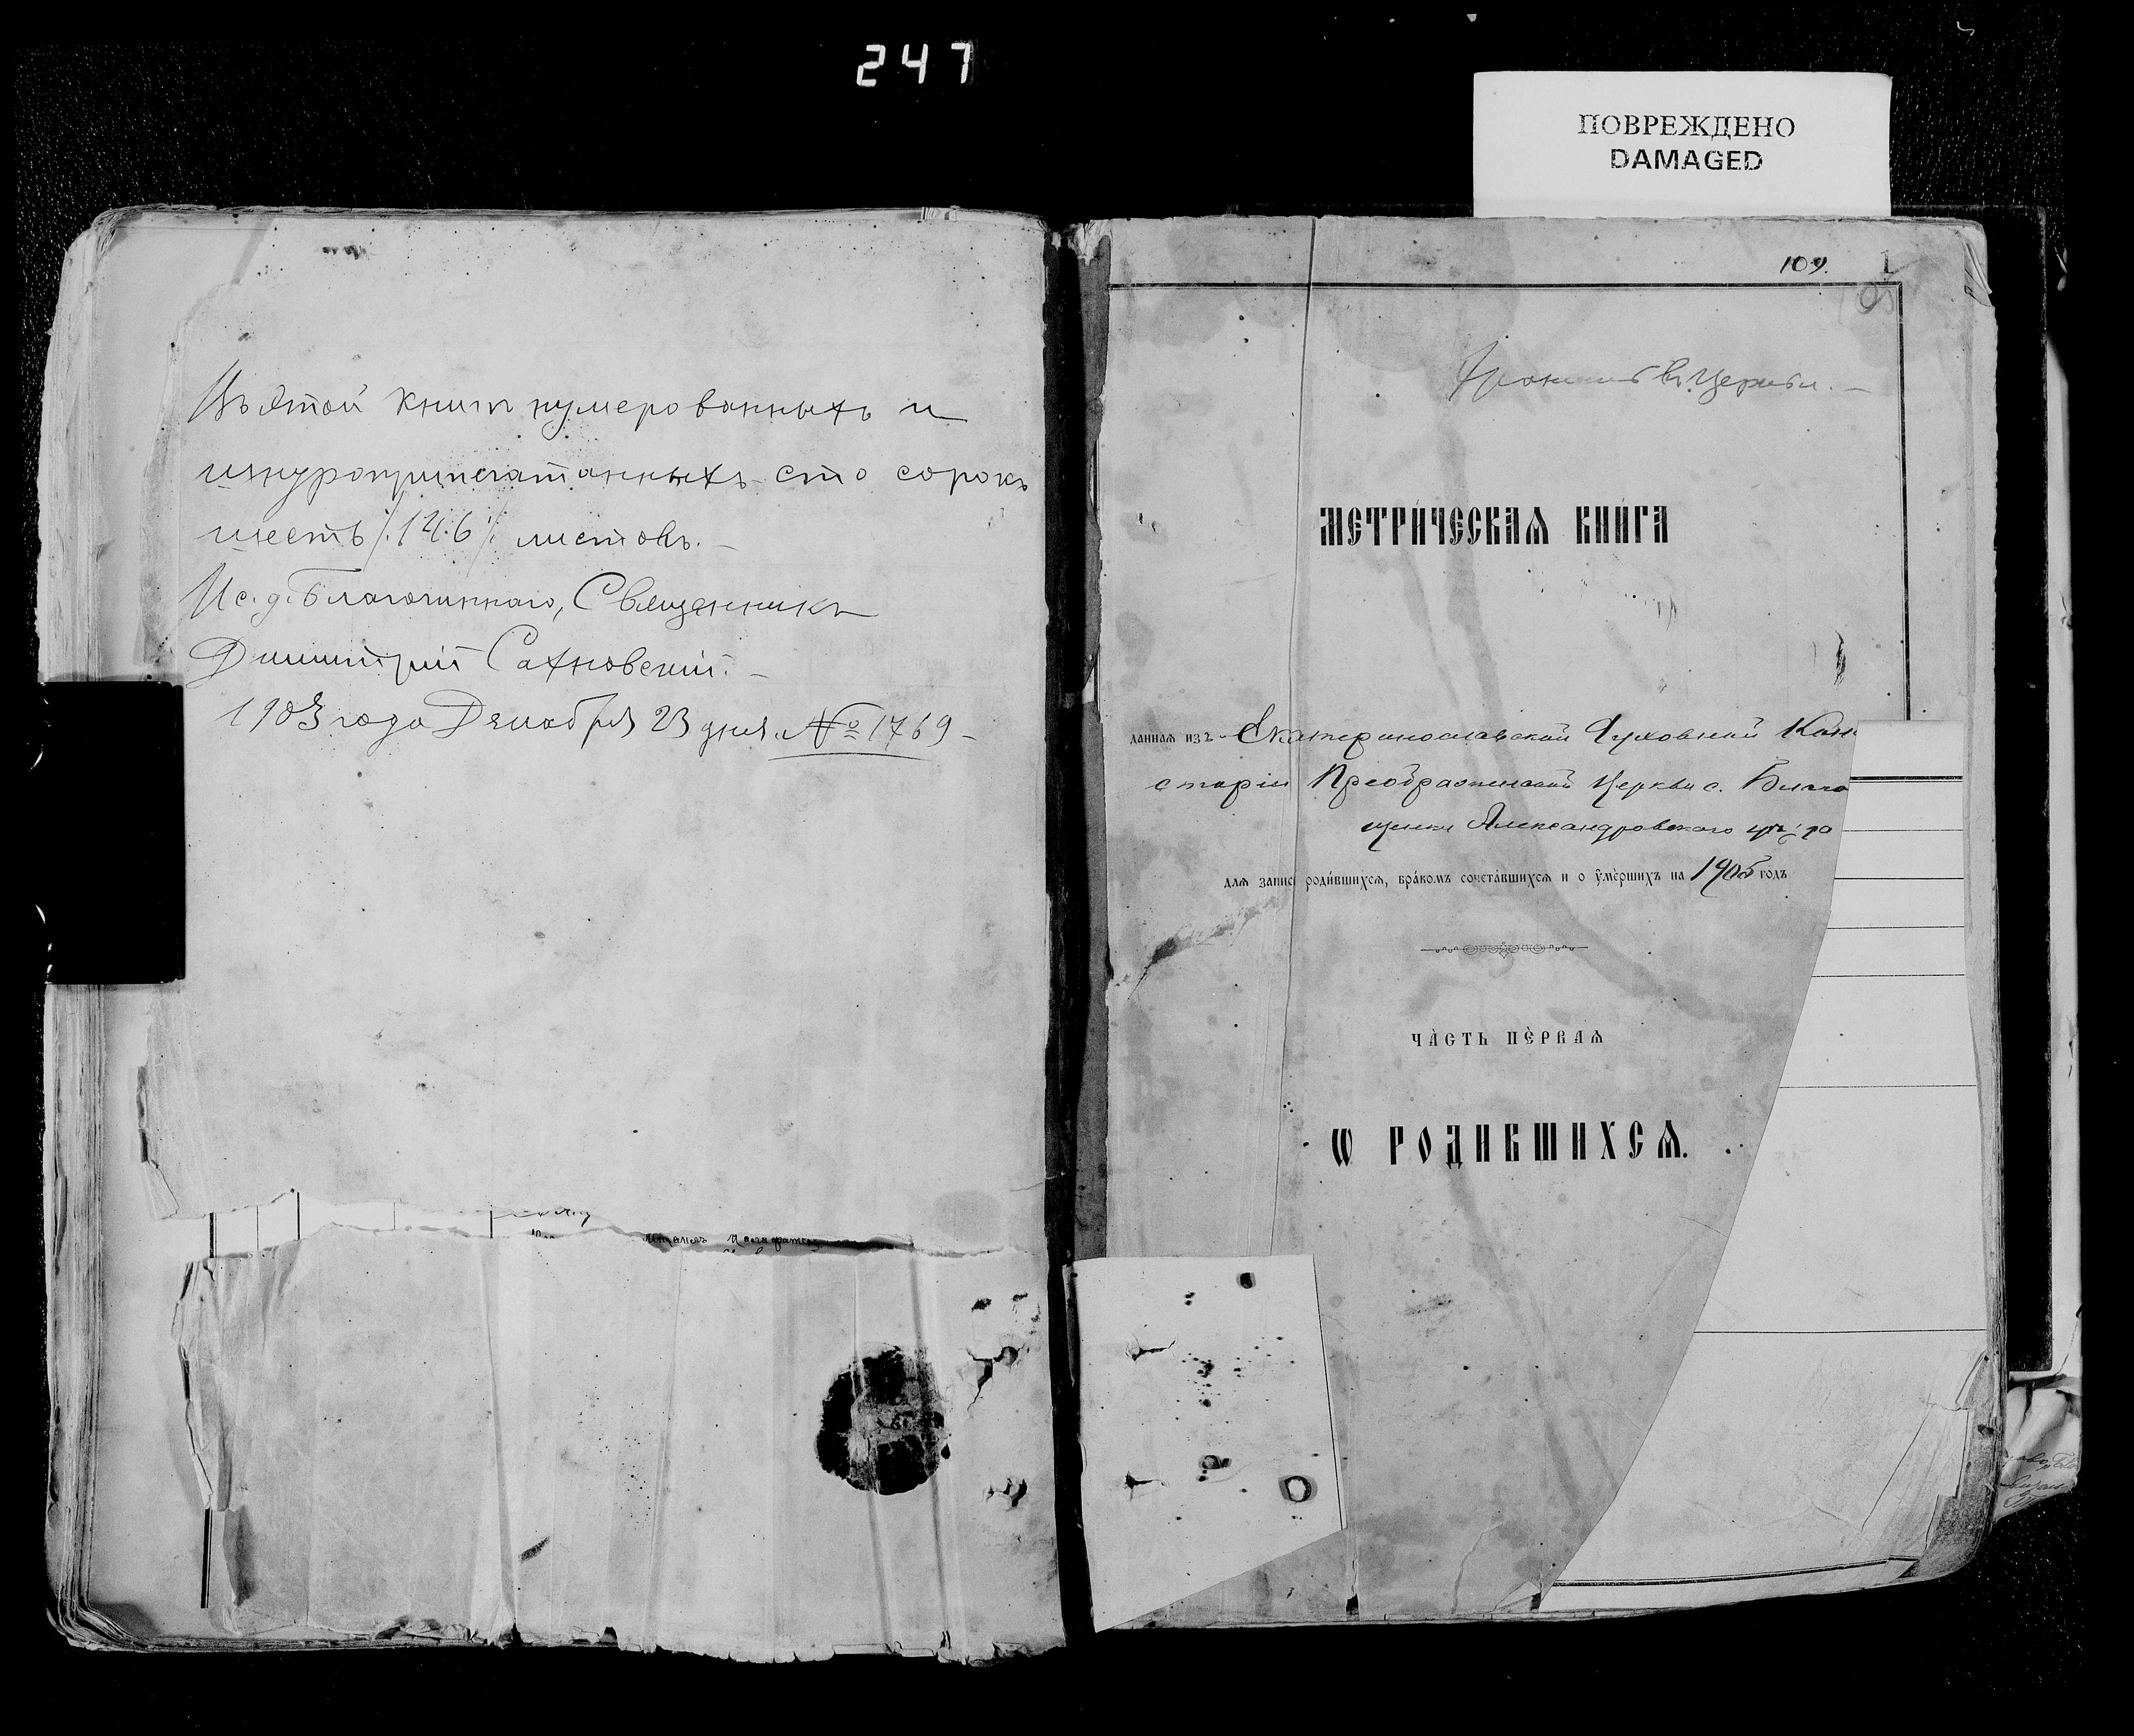 247
ПОВРЕЖДЕНО
DAMAGED
Въ этой книгѣ нумерованныхъ и
шнуроприпечатанныхъ сто сорокъ
шесть /.146./ листовъ.
Ис. д. Благочиннаго, Священникъ
Димитрій Сахновскій.
1903 года Декабря 23 дня. № 1769
109. 1
въ церкви.
МЕТРИ́ЧЕСКАѦ КНИ́ГА
даннаѧ изъ Екатеринославской Духовной Кон
сторіи Преображенской Церкви с. Благо
щенки Александровскаго уѣзда
длѧ записи роди́вшихсѧ, бра́комъ сочета́вшихсѧ и о ᲂу҆ме́ршихъ на 1905 годъ
ЧА̀СТЬ ПЀРВАѦ
Ѡ РОДИВШИХСѦ.